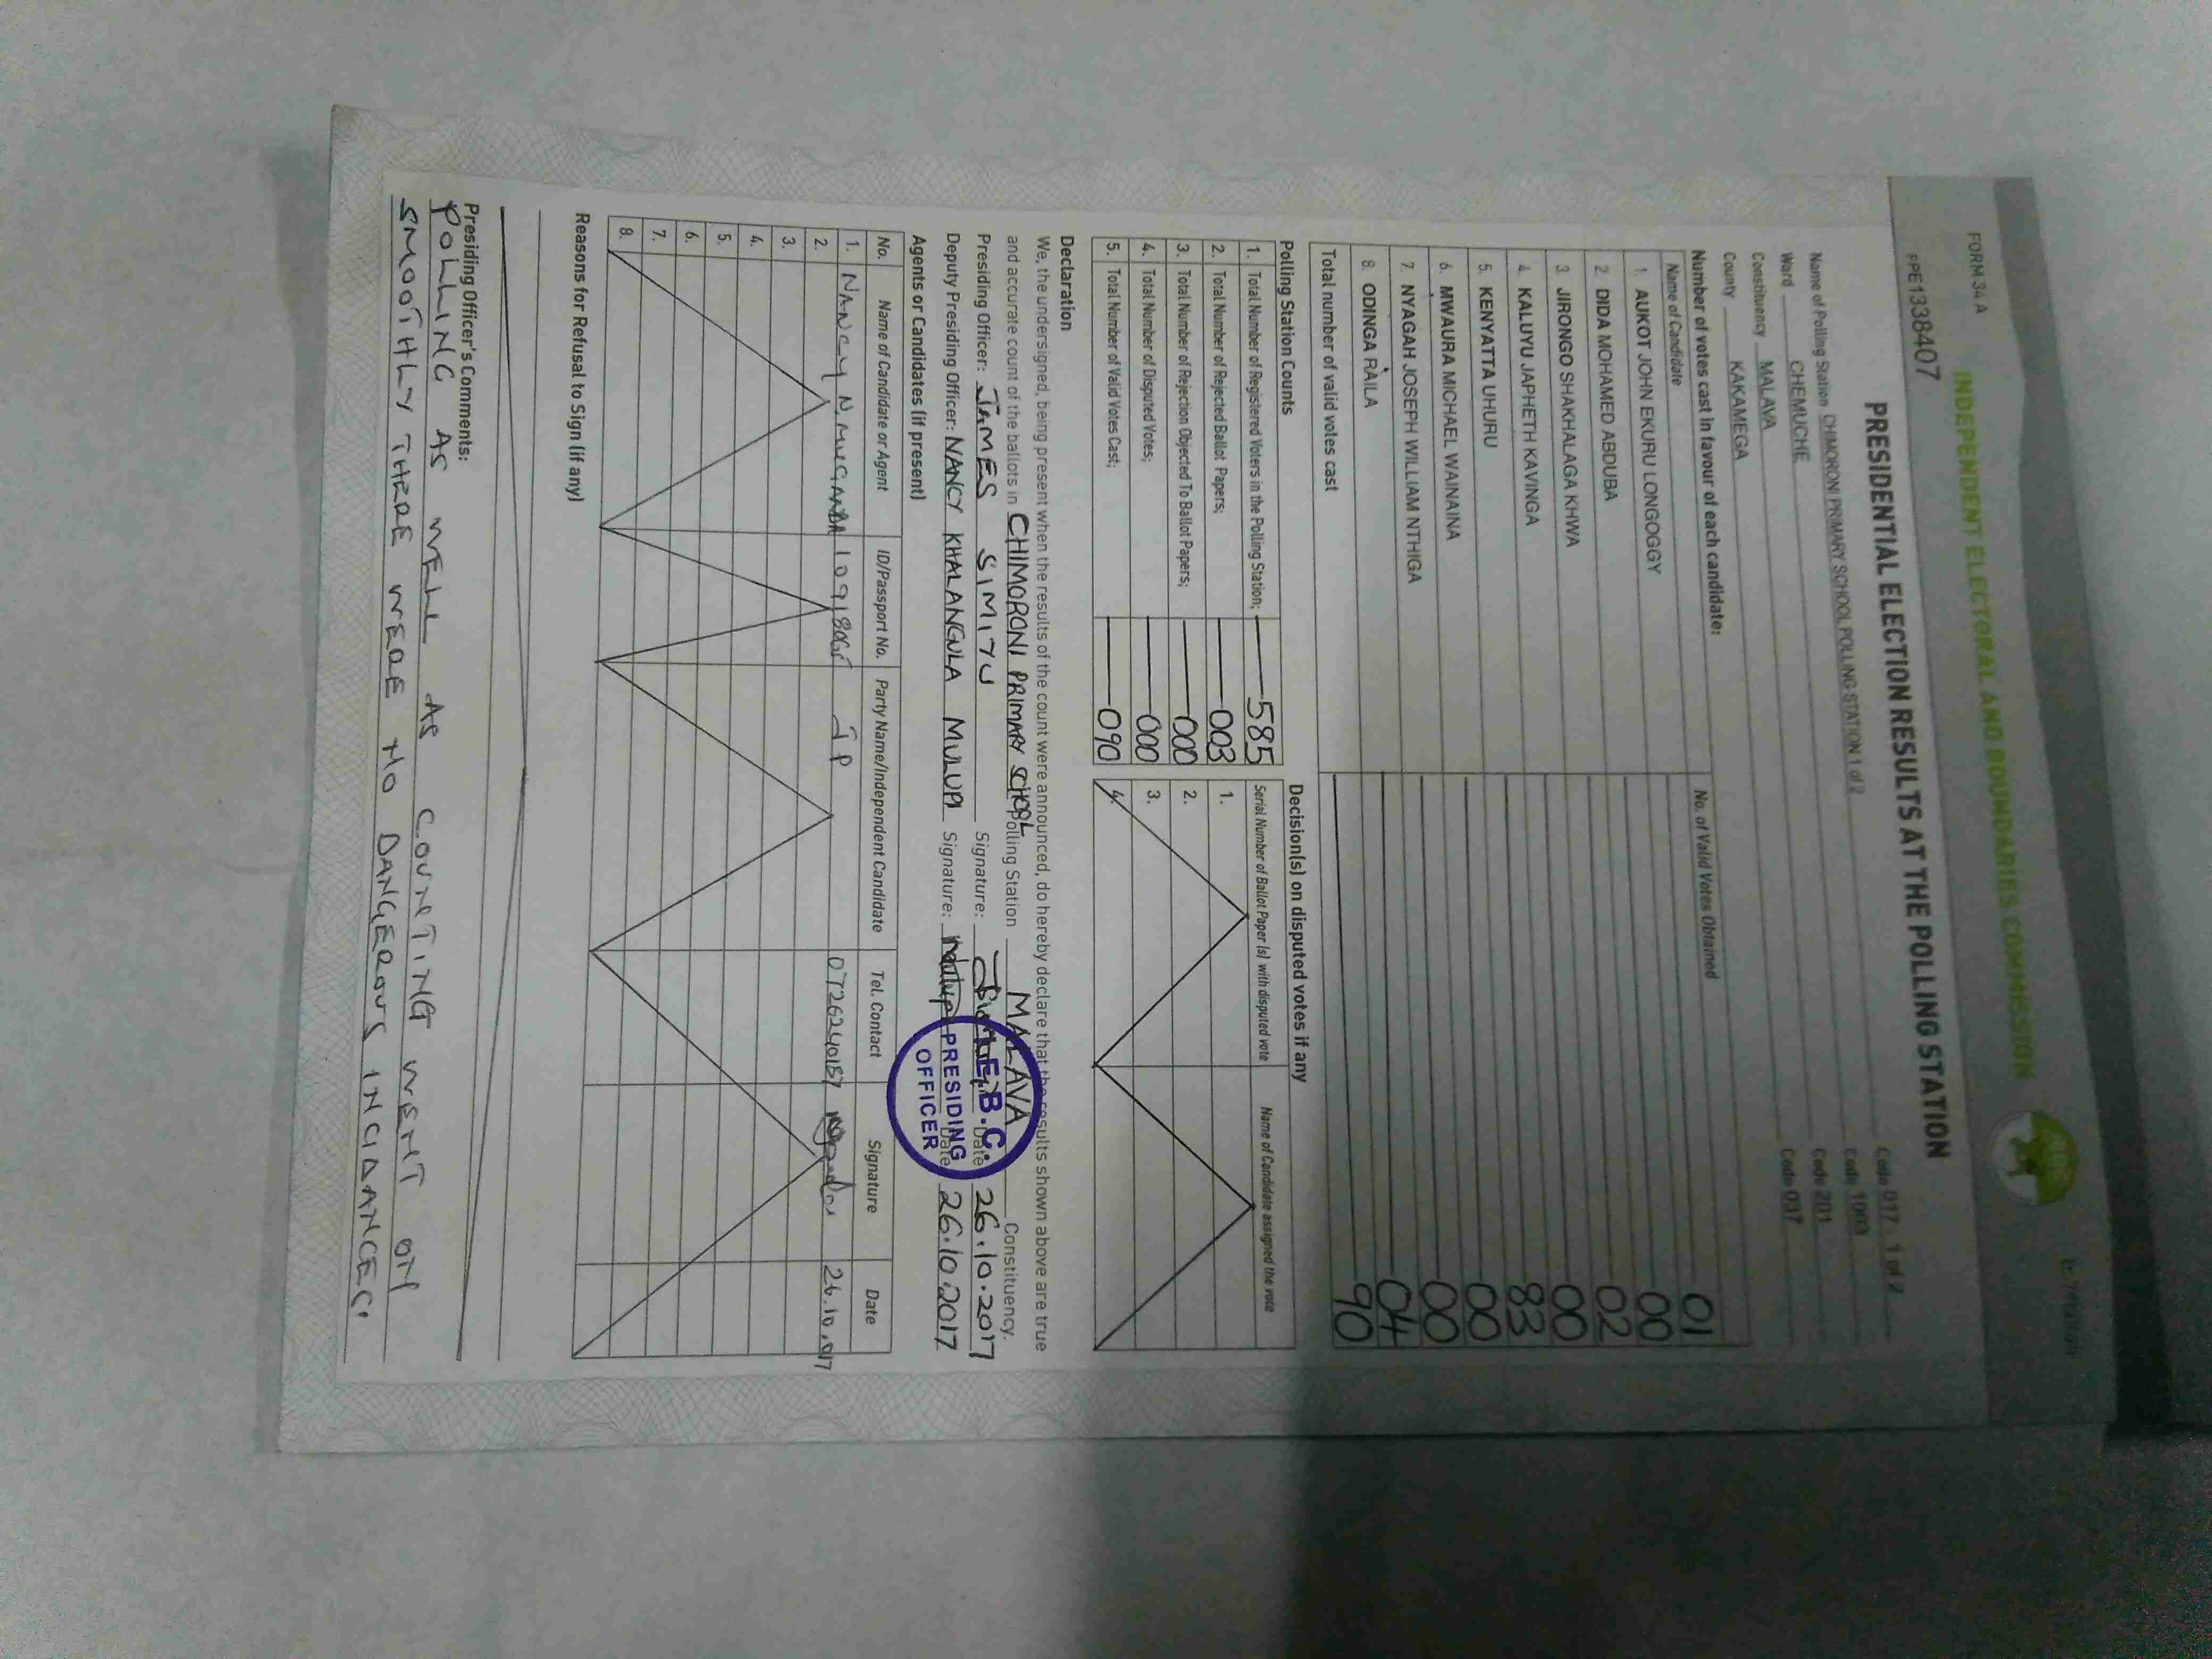 FORM 34 A
INDEPENDENT ELECTORAL AND BOUNDARIES COMMISSION
PPE1338407
PRESIDENTIAL ELECTION RESULTS AT THE POLLING STATION
Name of Polling Station CHIMORONI PRIMARY SCHOOL POLLING STATION 1 of 2 Code 017 . 1 of 2
Ward CHEMUCHE Code 1003
Constituency MALAVA Code 201
County KAKAMEGA Code 037
Number of votes cast in favour of each candidate:
Name of Candidate No. of Valid Votes Obtained
1. AUKOT JOHN EKURU LONGOGGY 01
2. DIDA MOHAMED ABDUBA 00
3. JIRONGO SHAKHALAGA KHWA 02
4. KALUYU JAPHETH KAVINGA 00
5. KENYATTA UHURU 83
6. MWAURA MICHAEL WAINAINA 00
7. NYAGAH JOSEPH WILLIAM NTHIGA 00
8. ODINGA RAILA 04
Total number of valid votes cast 90
Polling Station Counts
1. Total Number of Registered Voters in the Polling Station; 585
2. Total Number of Rejected Ballot Papers; 003
3. Total Number of Rejection Objected To Ballot Papers; 000
4. Total Number of Disputed Votes; 000
5. Total Number of Valid Votes Cast; 090
Decision(s) on disputed votes if any
Serial Number of Ballot Paper (s) with disputed vote Name of Candidate assigned the vote
1.
2.
3.
4.
Declaration
We, the undersigned, being present when the results of the count were announced, do hereby declare that the results shown above are true
and accurate count of the ballots in CHIMORONI PRIMARY SCHOOL Polling Station MALAVA Constituency.
Presiding Officer: JAMES SIMIYU Signature: Date 26.10.2017
Deputy Presiding Officer: NANCY KHALANGULA MULUPI Signature: Date 26.10.2017
I.E.B.C.
PRESIDING
OFFICER
Agents or Candidates (if present)
No. Name of Candidate or Agent ID/Passport No. Party Name/Independent Candidate Tel. Contact Signature Date
1. NANCY N. JP 0726240157 26.10.017
2.
3.
4.
5.
6.
7.
8.
Reasons for Refusal to Sign (if any)
Presiding Officer's Comments:
POLLING AS WELL AS COUNTING WENT ON
SMOOTHLY THERE WERE NO DANGEROUS INCIDANCES.